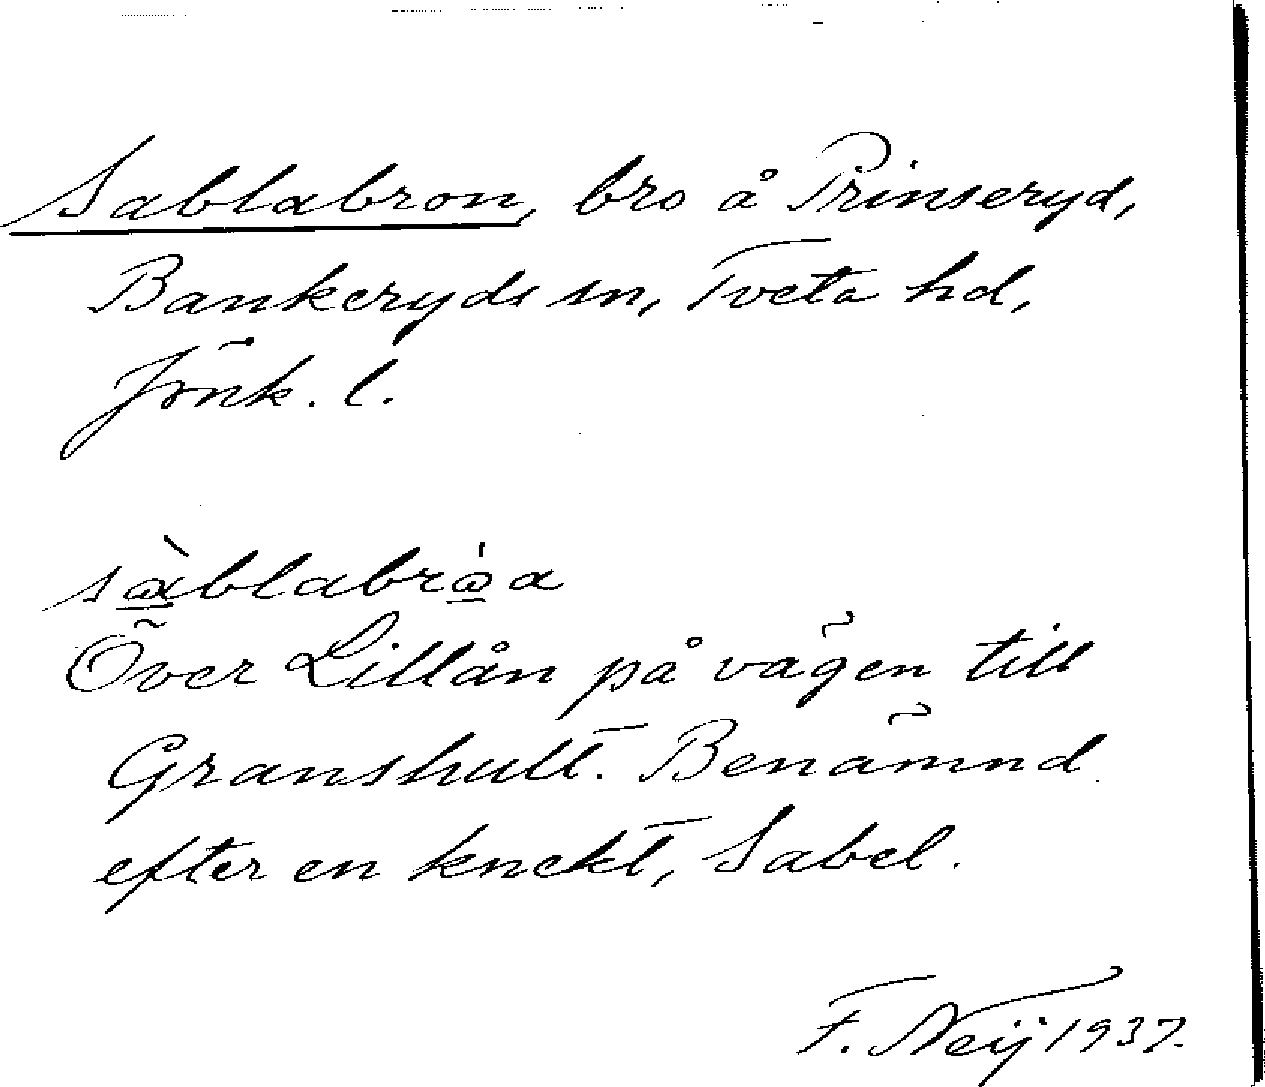 Sablabron, bro å Prinseryd,
Bankeryds sn, Tveta hd,
Jönk. l.
Över Lillån på vägen till
Granshult. Benämnd
efter en knekt, Sabel.
F. Neij 1937.